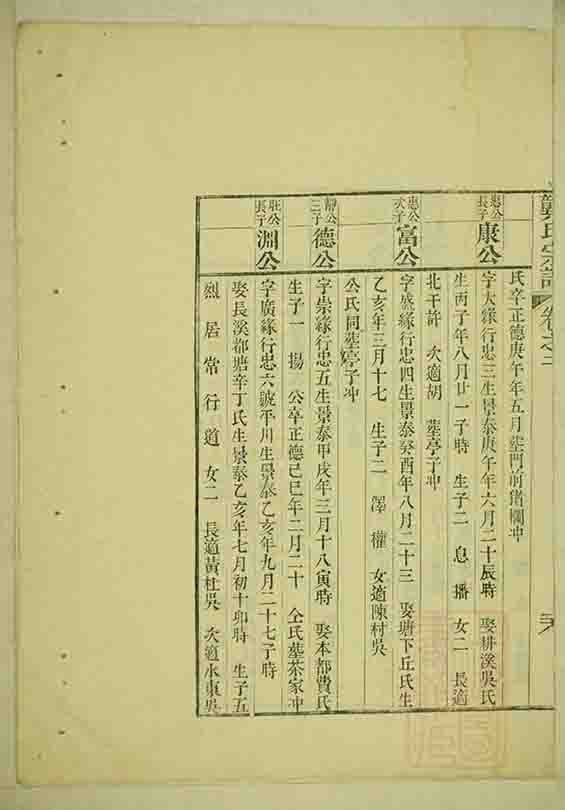 氏宗譜 卷之二
氏卒正德庚午年五月塟門前猪欄冲
惠公長子 康公
字大緣行忠三生景泰庚午年六月二十辰時 娶耕溪吳氏
生丙子年八月廿一子時 生子二 息 播 女二 長適
北干許 次適胡 塟亭子冲
惠公次子 富公
字盛緣行忠四生景泰癸酉年八月二十三 娶塘下丘氏生
乙亥年三月十七 生子二 澤 權 女適陳村吳
公氏同塟亭子冲
靜公三子 德公
字崇緣行忠五生景泰甲戌年三月十八寅時 娶本都費氏
生子一 揚 公卒正德己巳年二月二十 仝氏塟茶家冲
莊公長子 淵公
字廣緣行忠六號平川生景泰乙亥年九月二十七子時
娶長溪都塘辛丁氏生景泰乙亥年七月初十卯時 生子五
烈 居 常 行 道 女二 長適黃杜吳 次適水東吳